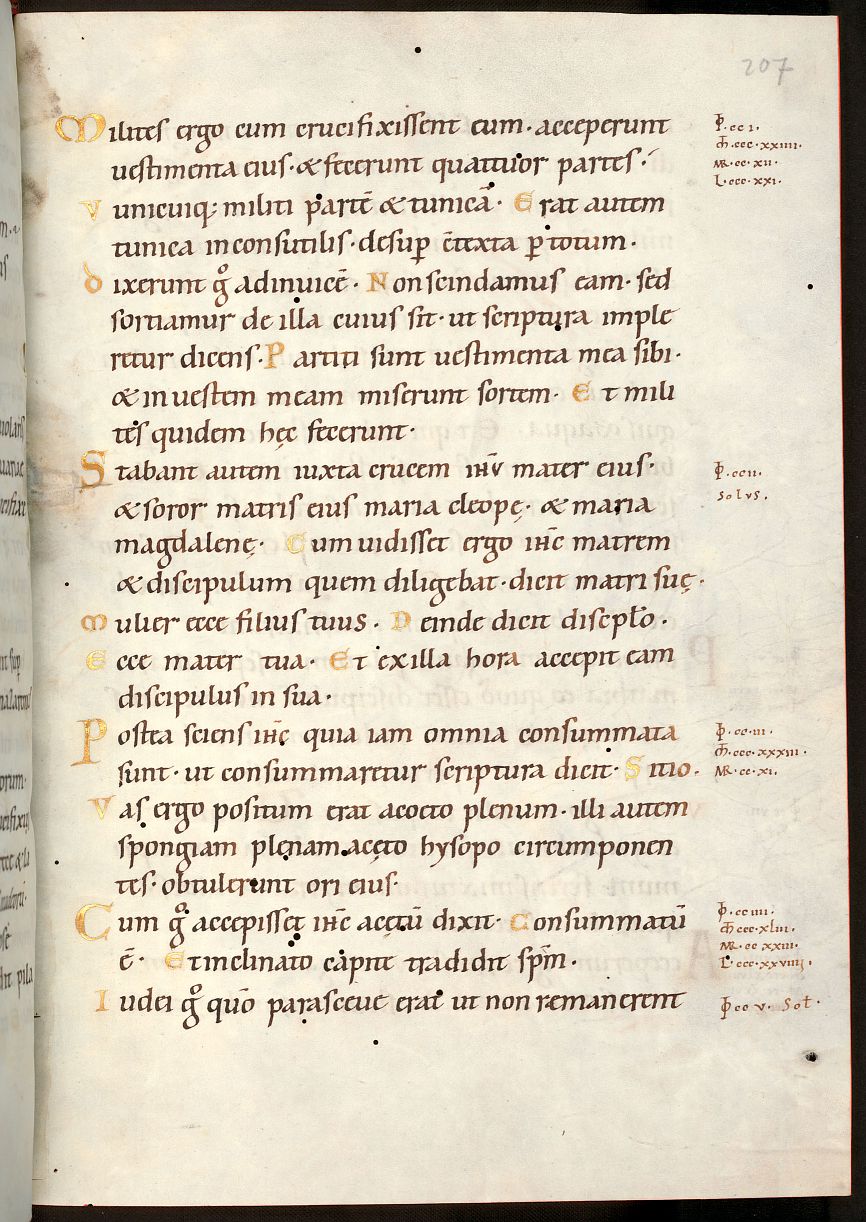 207
Milites ergo cum crucifixissent eum· acceperunt
uestimenta eius· & fecerunt quattuor partes·
Vnicuiq; militi partē & tunicā· Erat autem
tunica inconsutilis· desup̄ c̄texta p̄ totum·
dixerunt g̊ adinuicē· Non scindamus eam· sed
sortiamur de illa cuius sit· ut scriptura imple
retur dicens· Partiti sunt uestimenta mea sibi·
& in uestem meam miserunt sortem· Et mili
tes quidem hęc fecerunt·
Stabant autem iuxta crucem ihu mater eius·
& soror matris eius maria cleopę· & maria
magdalenę· Cum uidisset ergo ihc matrem
& discipulum quem diligebat· dicit matri suę·
Mulier ecce filius tuus· Deinde dicit discplo·
Ecce mater tua· Et ex illa hora accepit eam
discipulus in sua·
Postea sciens ihc quia iam omnia consummata
sunt· ut consummaretur scriptura dicit· Sitio·
Vas ergo positum erat acoeto plenum· illi autem
spongiam plenam acęto hysopo circumponen
tes· obtulerunt ori eius·
Cum g̊ accepisset ihc acętū dixit· Consummatū
ē· Et inclinato capite tradidit sp̄m·
Iudei g̊ quō parasceue erat ut non remanerent
cc i·
ccc·xxiiii·
MR·cc·xii·
L·ccc·xxi·
cc ii·
solus·
cc·iii·
ccc·xxxiii·
MR·cc·xi·
cc iiii·
ccc·xliii·
MR·cc xxiii·
L·ccc·xxviiii·
cc v· Sol·